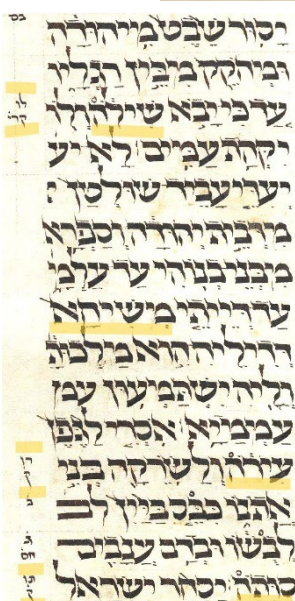 יסור שבט מיהודה
ומחקק מבין רגליו
עד כי יבא שילה ולו
יקהת עמים לא יע
יעדי עביד שולטן י
מדבית יהודה וספרא
מבני בנוהי עד עלמ
עד דייתי משיחא
דדיליה היא
וליה ישתמעון עמ
עממיא אסרי לגפן
עירה ולשרקה בני
אתנו כבס ביין לב
לבשו ובדם ענבים
סותה יסחר ישראל